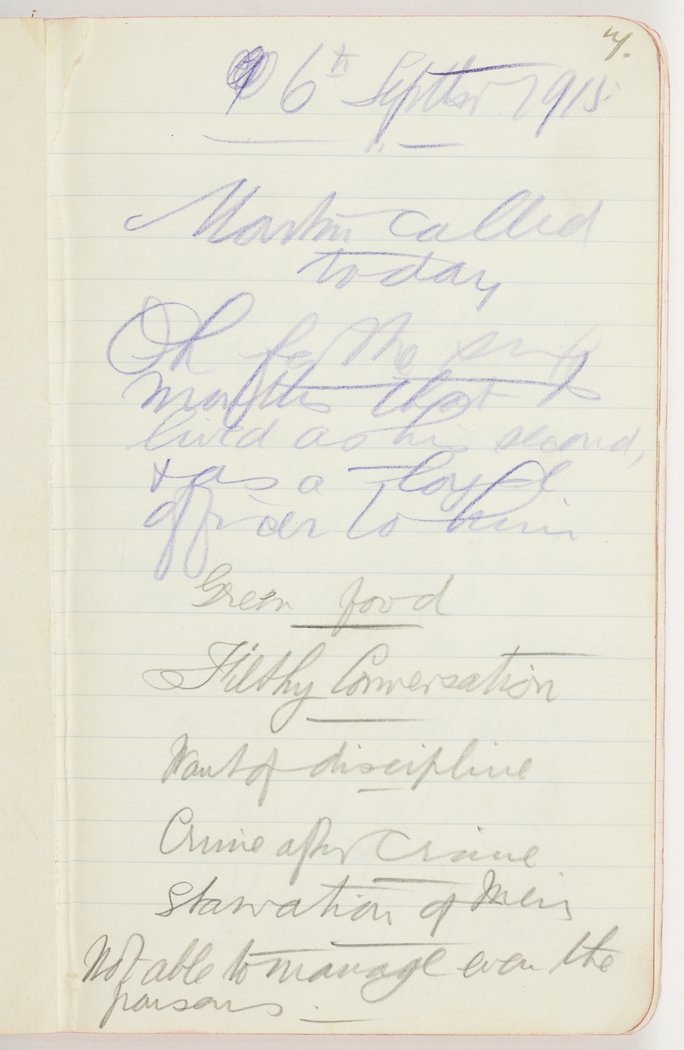 4.
6th Septber 1915
Martin called
today
Oh for the six
months that I
lived as his second,
& as a loyal
officer to him
Green food
Filthy Conversation
Want of discipline
Crime after Crime
Starvation of Men
Not able to manage even the